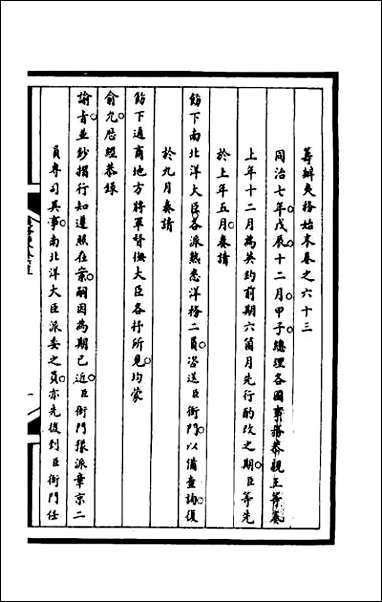 籌辦夷務始末卷之六十三
同治七年戊辰十二月甲子總理各國事務恭親王等奏
上年十二月為英約前期六箇月先行酌改之期臣等先
於上年五月奏請
飭下南北洋大臣各派熟悉洋務二員咨送臣衙門以備查詢復
於九月奏請
飭下通商地方將軍督撫大臣各抒所見均蒙
俞允歷經恭錄
諭旨並鈔摺行知遵照在案嗣因為期已近臣衙門揀派章京二
員專司其事南北洋大臣派委之員亦先後到臣衙門任